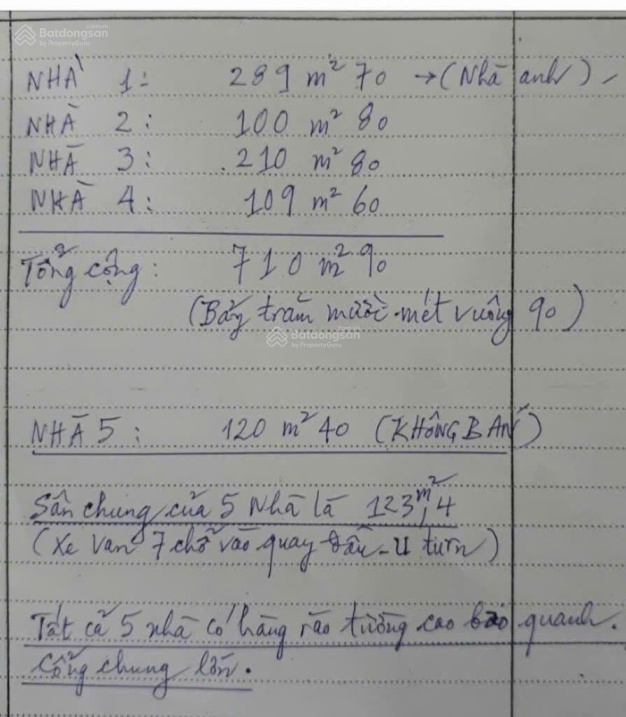 Batdongsan
by PropertyGuru
NHÀ 1: 289 m² 70 → (Nhà anh)
NHÀ 2: 100 m² 80
NHÀ 3: 210 m² 80
NHÀ 4: 109 m² 60
Tổng cộng: 710 m² 90
(Bảy trăm mười mét vuông 90)
Batdongsan
by PropertyGuru
NHÀ 5: 120 m² 40 (KHÔNG BÁN)
Sân chung của 5 Nhà là 123,m² 4
(Xe Van 7 chỗ vào quay đầu - U turn)
Tất cả 5 nhà có hàng rào tường cao bao quanh.
Cổng chung lớn.